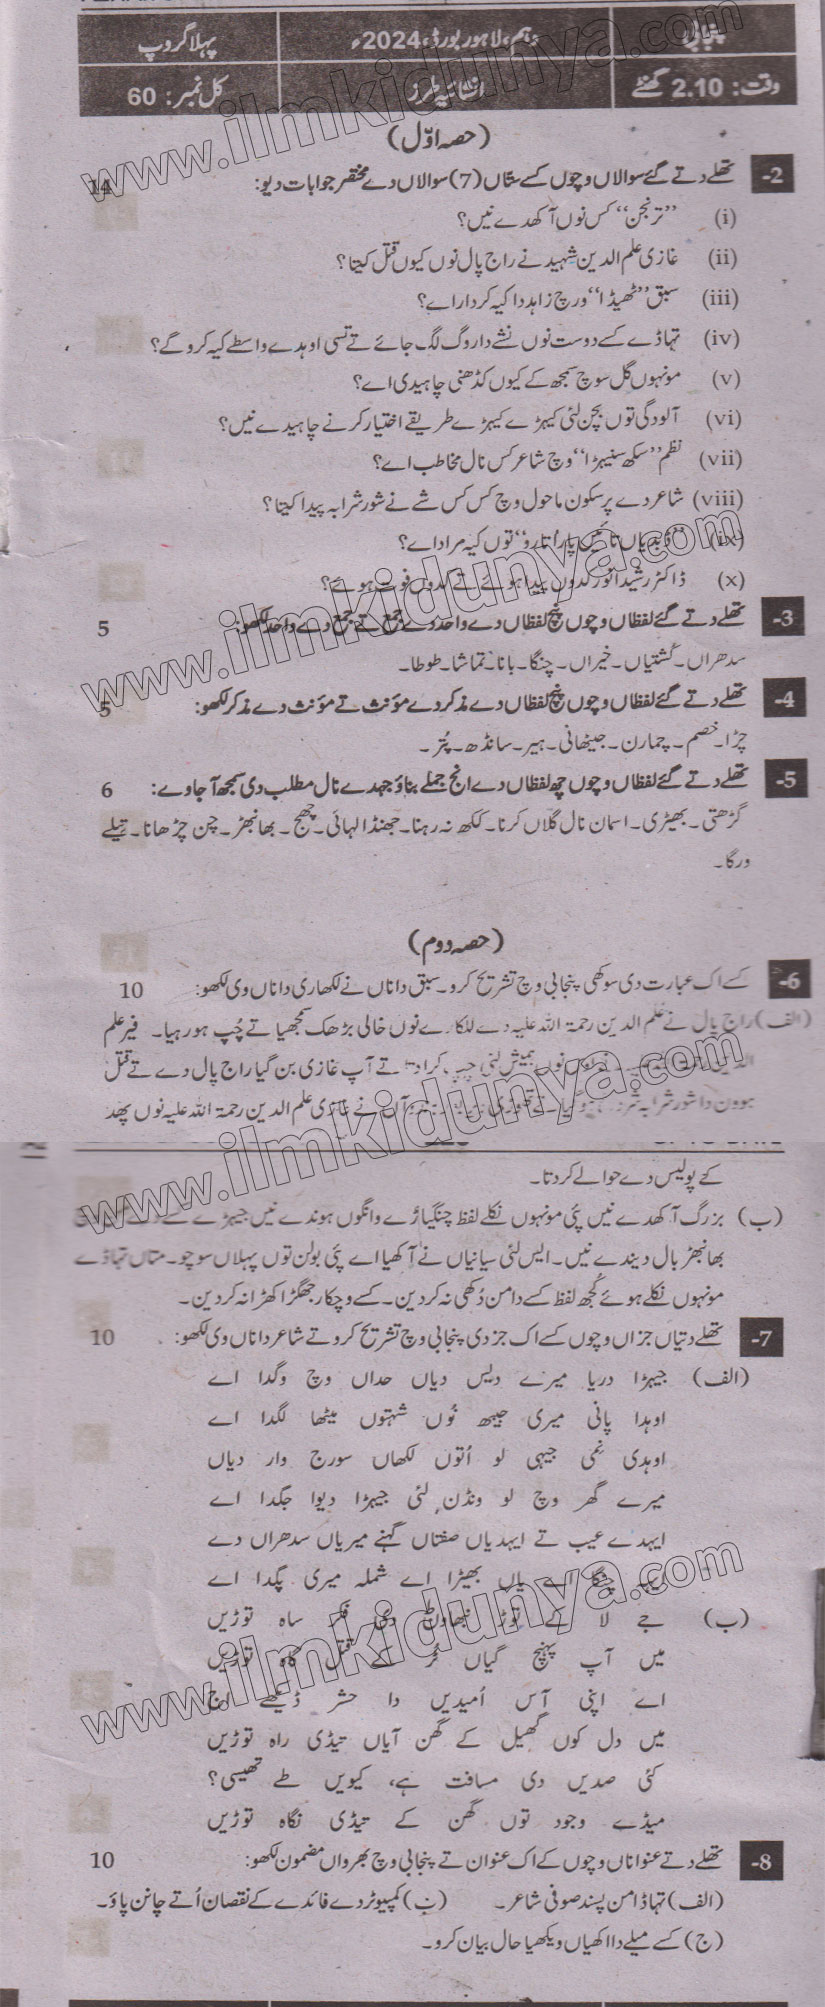 پنجابی
دہم، لاہور بورڈ، 2024ء
پہلا گروپ
وقت: 2.10 گھنٹے
انشائیہ طرز
کل نمبر: 60
(حصہ اوّل)
2- تھلے دتے گئے سوالاں وچوں کسے ستّاں (7) سوالاں دے مختصر جوابات دیو: 14
(i) ’’ترنجن‘‘ کس نوں آکھدے نیں؟
(ii) غازی علم الدین شہید نے راج پال نوں کیوں قتل کیتا؟
(iii) سبق ’’ٹھیڈا‘‘ ورچ زاہد دا کیہ کردار اے؟
(iv) تہاڈے کسے دوست نوں نشے دا روگ لگ جائے تے تسی اوہدے واسطے کیہ کرو گے؟
(v) مونہوں گل سوچ سمجھ کے کیوں کڈھنی چاہیدی اے؟
(vi) آلودگی توں بچن لئی کیہڑے کیہڑے طریقے اختیار کرنے چاہیدے نیں؟
(vii) نظم ’’سکھ سنیہڑا‘‘ وچ شاعر کس نال مخاطب اے؟
(viii) شاعر دے پرسکون ماحول وچ کس کس شے نے شور شرابہ پیدا کیتا؟
(ix) ’’ڈبدیاں تائیں پار اُتارو‘‘ توں کیہ مراد اے؟
(x) ڈاکٹر رشید انور کدوں پیدا ہوئے تے کدوں فوت ہوئے؟
3- تھلے دتے گئے لفظاں وچوں پنج لفظاں دے واحد دے جمع تے جمع دے واحد لکھو: 5
سدھراں۔ کُشتیاں۔ خیراں۔ چنگا۔ بانا۔ تماشا۔ طوطا۔
4- تھلے دتے گئے لفظاں وچوں پنج لفظاں دے مذکر دے مؤنث تے مؤنث دے مذکر لکھو: 5
چڑا۔ خصم۔ چمارن۔ جیٹھانی۔ ہیر۔ سانڈھ۔ پُتر۔
5- تھلے دتے گئے لفظاں وچوں چھ لفظاں دے انج جملے بناؤ جہدے نال مطلب دی سمجھ آ جاوے: 6
گڑھتی۔ بھیڑی۔ اسمان نال گلاں کرنا۔ لکھ نہ رہنا۔ جھنڈا لہائی۔ چھج۔ بھانبھڑ۔ چن چڑھانا۔ تِیلے
ورگا۔
(حصہ دوم)
6- کسے اک عبارت دی سوکھی پنجابی وچ تشریح کرو۔ سبق دا ناں نے لکھاری دا ناں وی لکھو: 10
(الف) راج پال نے علم الدین رحمۃ اللہ علیہ دے للکارے نوں خالی بڑھک سمجھیا تے چُپ ہو رہیا۔ فیر علم
الدین رحمۃ نوں ہمیش لئی چپ کرا تے آپ غازی بن گیا راج پال دے تے قتل
ہوون دا شور شرابہ تے تھوڑی نے غازی علم الدین رحمۃ اللہ علیہ نوں پھڑ
کے پولیس دے حوالے کر دتا۔
(ب) بزرگ آکھدے نیں پئی مونہوں نکلے لفظ چنگیاڑے وانگوں ہوندے نیں جیہڑے
بھانبھڑ بال دیندے نیں۔ ایس لئی سیانیاں نے آکھیا اے پئی بولن توں پہلاں سوچو۔ متاں تہاڈے
مونہوں نکلے ہوئے کُجھ لفظ کسے دا من دُکھی نہ کر دین۔ کسے وچکار جھگڑا کھڑا نہ کر دین۔
7- تھلے دتیاں جزاں وچوں کسے اک جز دی پنجابی وچ تشریح کرو تے شاعر دا ناں وی لکھو: 10
(الف) جیہڑا دریا میرے دیس دیاں حداں وچ وگدا اے
اوہدا پانی میری جیبھ نُوں شہتوں میٹھا لگدا اے
اوہدی نِمی جیہی لو اُتوں لکھاں سورج وار دیاں
میرے گھر وچ لو ونڈن لئی جیہڑا دیوا جگدا اے
ایہدے عیب تے ایہدیاں صفتاں گہنے میریاں سدھراں دے
چنگا اے یاں بھیڑا اے شملہ میری پگ دا اے
(ب) جے لا کے توڑ نبھاون دی فکر ساہ توڑیں
میں آپ پہنچ گیاں ٹُر کے قتل گاہ توڑیں
اے اپنی آس اُمیدیں دا حشر ڈیکھے اج
میں دل کوں گھیل کے گھن آیاں تیڈی راہ توڑیں
کئی صدیں دی مسافت ہے، کیویں طے تھیسی؟
میڈے وجود توں گھن کے تیڈی نگاہ توڑیں
8- تھلے دتے عنواناں وچوں کسے اک عنوان تے پنجابی وچ بھرواں مضمون لکھو: 10
(الف) تہاڈا من پسند صوفی شاعر۔ (ب) کمپیوٹر دے فائدے کے نقصان اُتے چانن پاؤ۔
(ج) کسے میلے دا اکھیاں ویکھیا حال بیان کرو۔
www.ilmkidunya.com
www.ilmkidunya.com
www.ilmkidunya.com
www.ilmkidunya.com